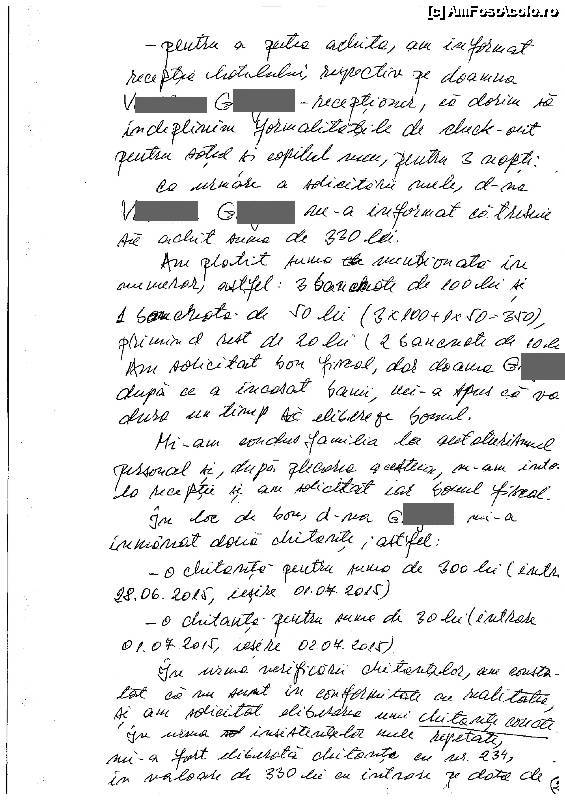 [c] AmFostAcolo.ro
- pentru a putea achita, am informat
recepția hotelului, respectiv pe doamna
V G - recepționer, că dorim să
îndeplinim formalitățile de check-out
pentru soțul și copilul meu, pentru 3 nopți.
Ca urmare a solicitării mele, d-na
V G ne-a informat că trebuie
să achit suma de 330 lei.
Am plătit suma menționată în
numerar, astfel: 3 bancnote de 100 lei și
1 bancnota de 50 lei (3x100+1x50=350),
primind rest de 20 lei (2 bancnote de 10 le
Am solicitat bon fiscal, dar doamna G
după ce a încasat banii, mi-a spus că va
dura un timp să elibereze bonul.
Mi-am condus familia la autoturismul
personal și, după plecarea acesteia, m-am înto
la recepție și am solicitat iar bonul fiscal.
În loc de bon, d-na G mi-a
înmânat două chitanțe, astfel:
- o chitanță pentru suma de 300 lei (intr
28.06.2015, ieșire 01.07.2015)
- o chitanță pentru suma de 30 lei (intrare
01.07.2015, ieșire 02.07.2015)
În urma verificării chitanțelor, am consta-
tat că nu sunt în conformitate cu realitatea,
și am solicitat eliberarea unei chitanțe corecte
În urma insistențelor mele repetate,
mi-a fost eliberată chitanța cu nr. 234,
în valoare de 330 lei cu intrare pe data de